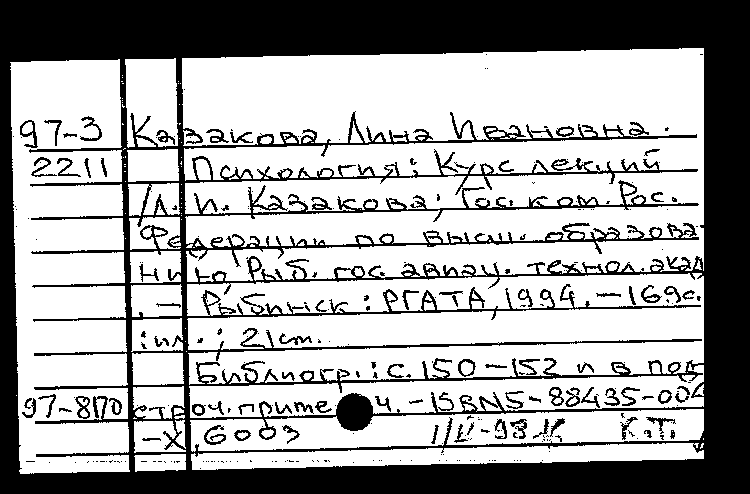 97-3 Казакова, Лина Ивановна.
2211 Психология: Курс лекций
/Л. И. Казакова; Гос. ком. Рос.
Федерации по высш. образова-
нию, Рыб. гос. авиац. технол. акад
. — Рыбинск: РГАТА, 1994. — 169с.
: ил. ; 21 см.
Библиогр.: с. 150—152 и в под
97-8170 строч. приме ч. — ISBN5-88435-004
-X, 6003 К.Т.